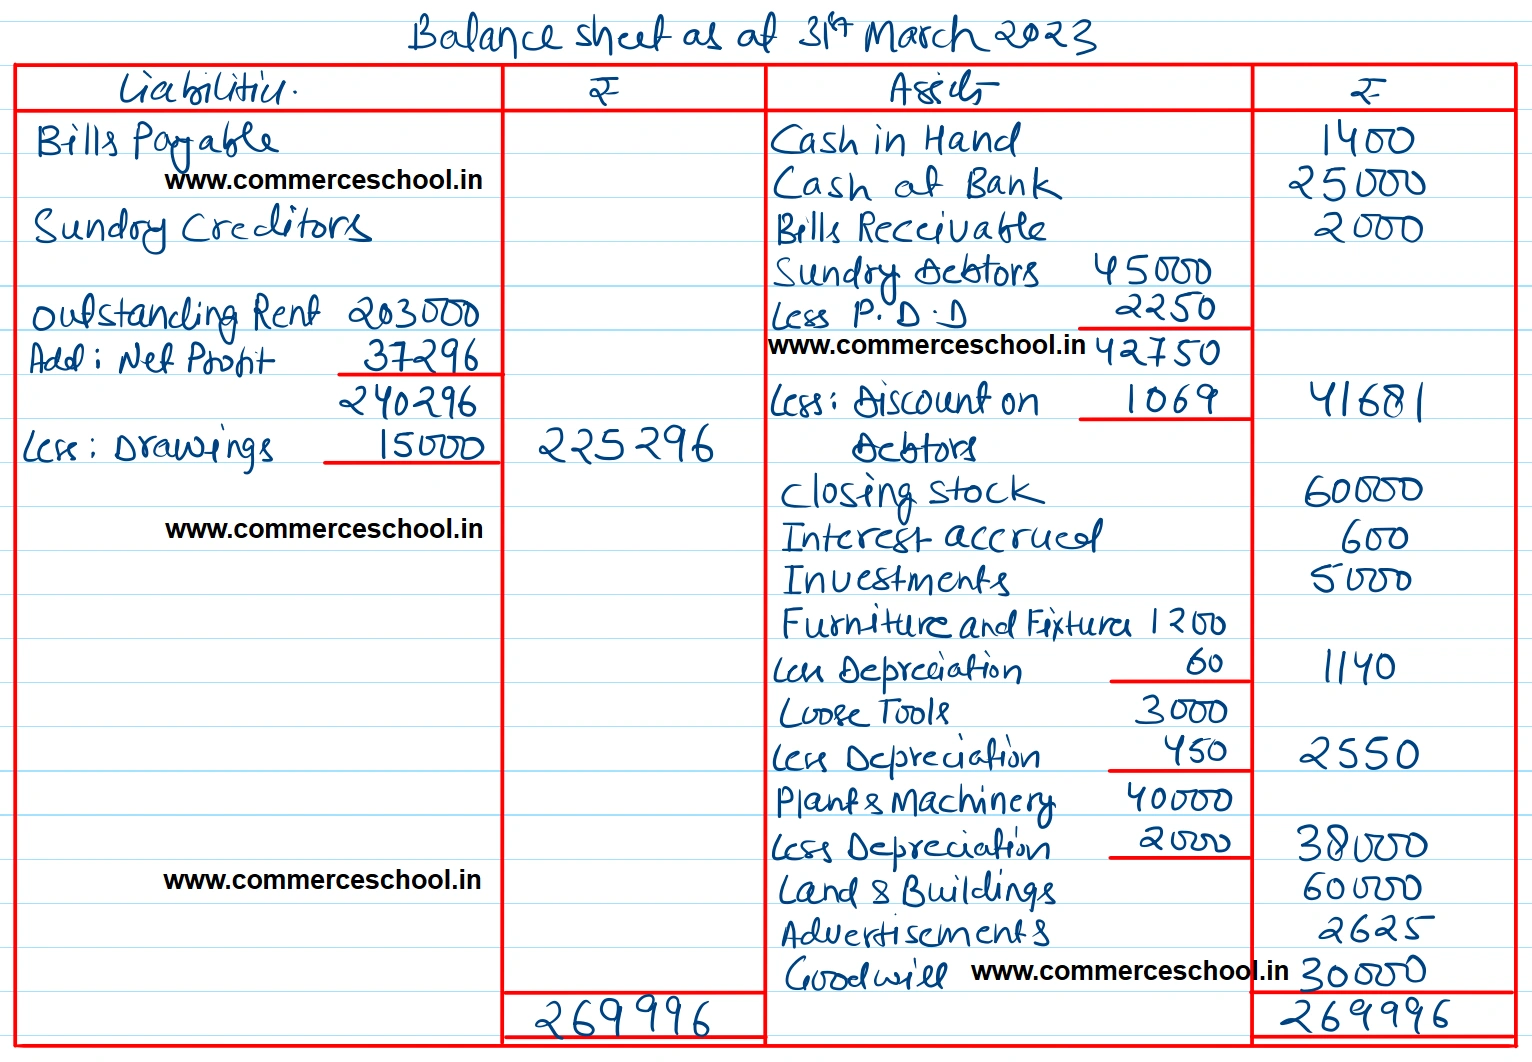 Balance sheet as at 31st March 2023
Liabilities. ₹ Assets ₹
Bills Payable
www.commerceschool.in
Sundry Creditors
Outstanding Rent 203000
Add: Net Profit 37296
240296
Less: Drawings 15000 225296
www.commerceschool.in
www.commerceschool.in
269996
Cash in Hand 1400
Cash at Bank 25000
Bills Receivable 2000
Sundry Debtors 45000
Less P.D.D 2250
www.commerceschool.in 42750
Less: Discount on 1069 41681
Debtors
Closing stock 60000
Interest accrued 600
Investments 5000
Furniture and Fixtures 1200
Less Depreciation 60 1140
Loose Tools 3000
Less Depreciation 450 2550
Plant & Machinery 40000
Less Depreciation 2000 38000
Land & Buildings 60000
Advertisements 2625
Goodwill www.commerceschool.in 30000
269996